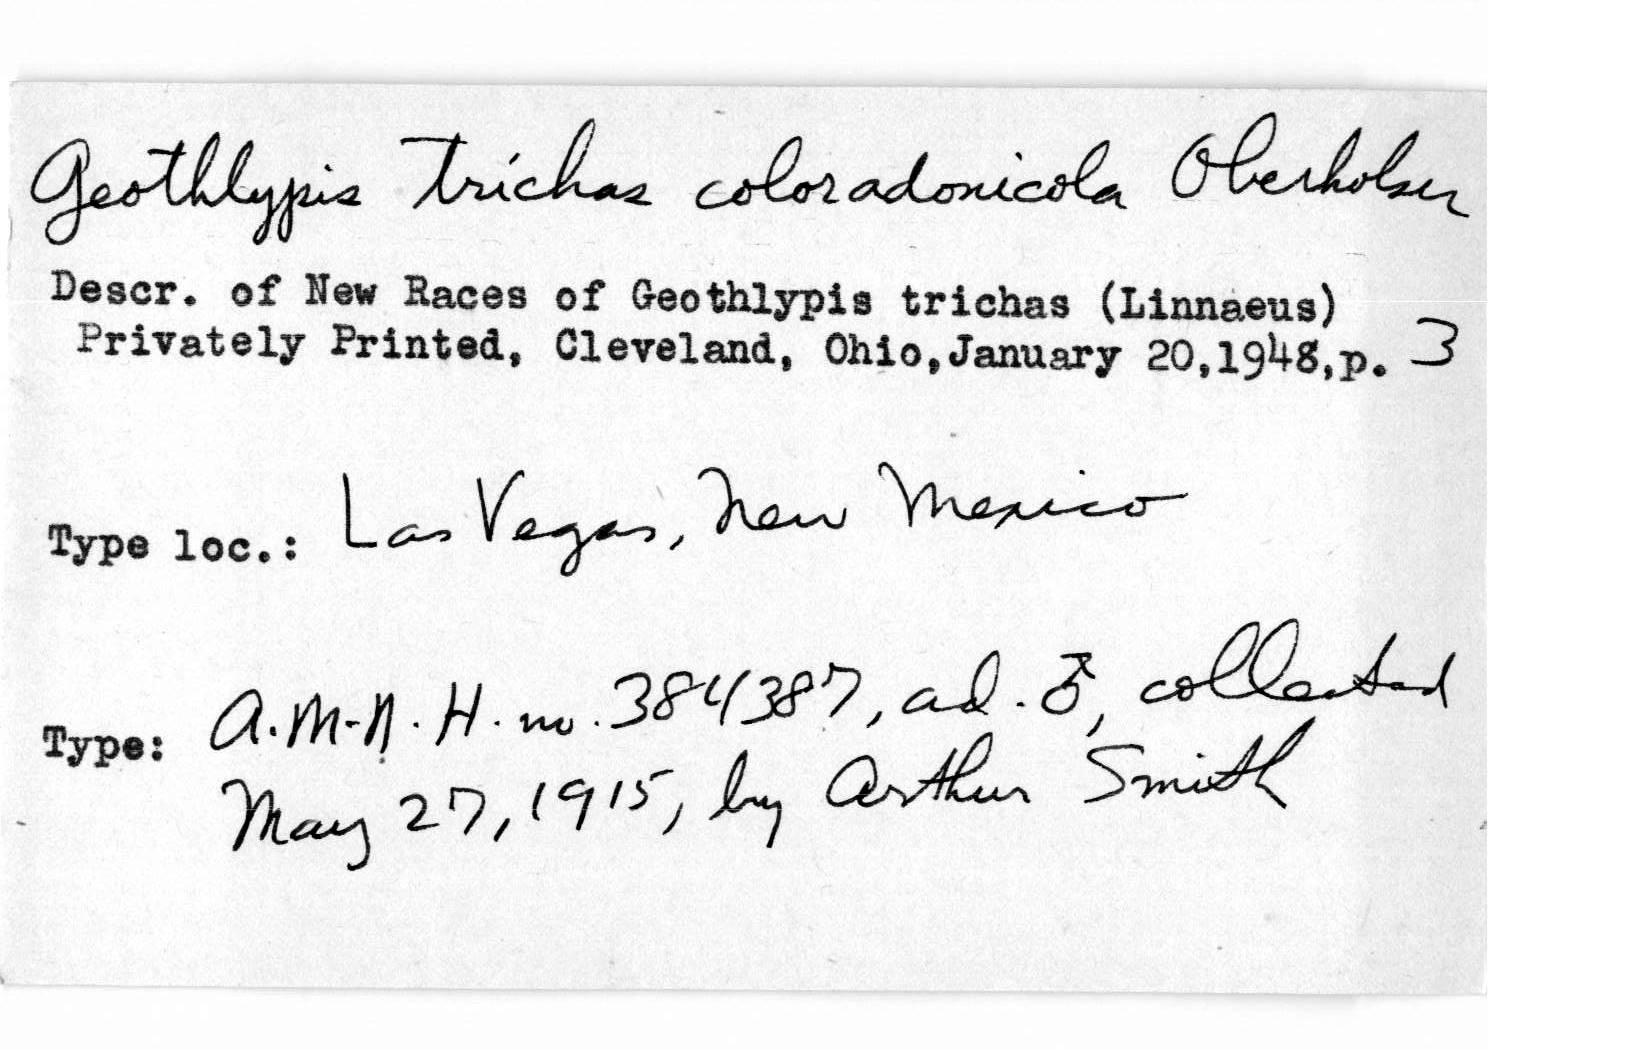 Geothlypis trichas coloradonicola Oberholser
Descr. of New Races of Geothlypis trichas (Linnaeus)
Privately Printed, Cleveland, Ohio,January 20,1948,p. 3
Type loc.: Las Vegas, New Mexico
Type: A.M.N.H. no. 384387, ad. ♂, collected
May 27, 1915, by Arthur Smith